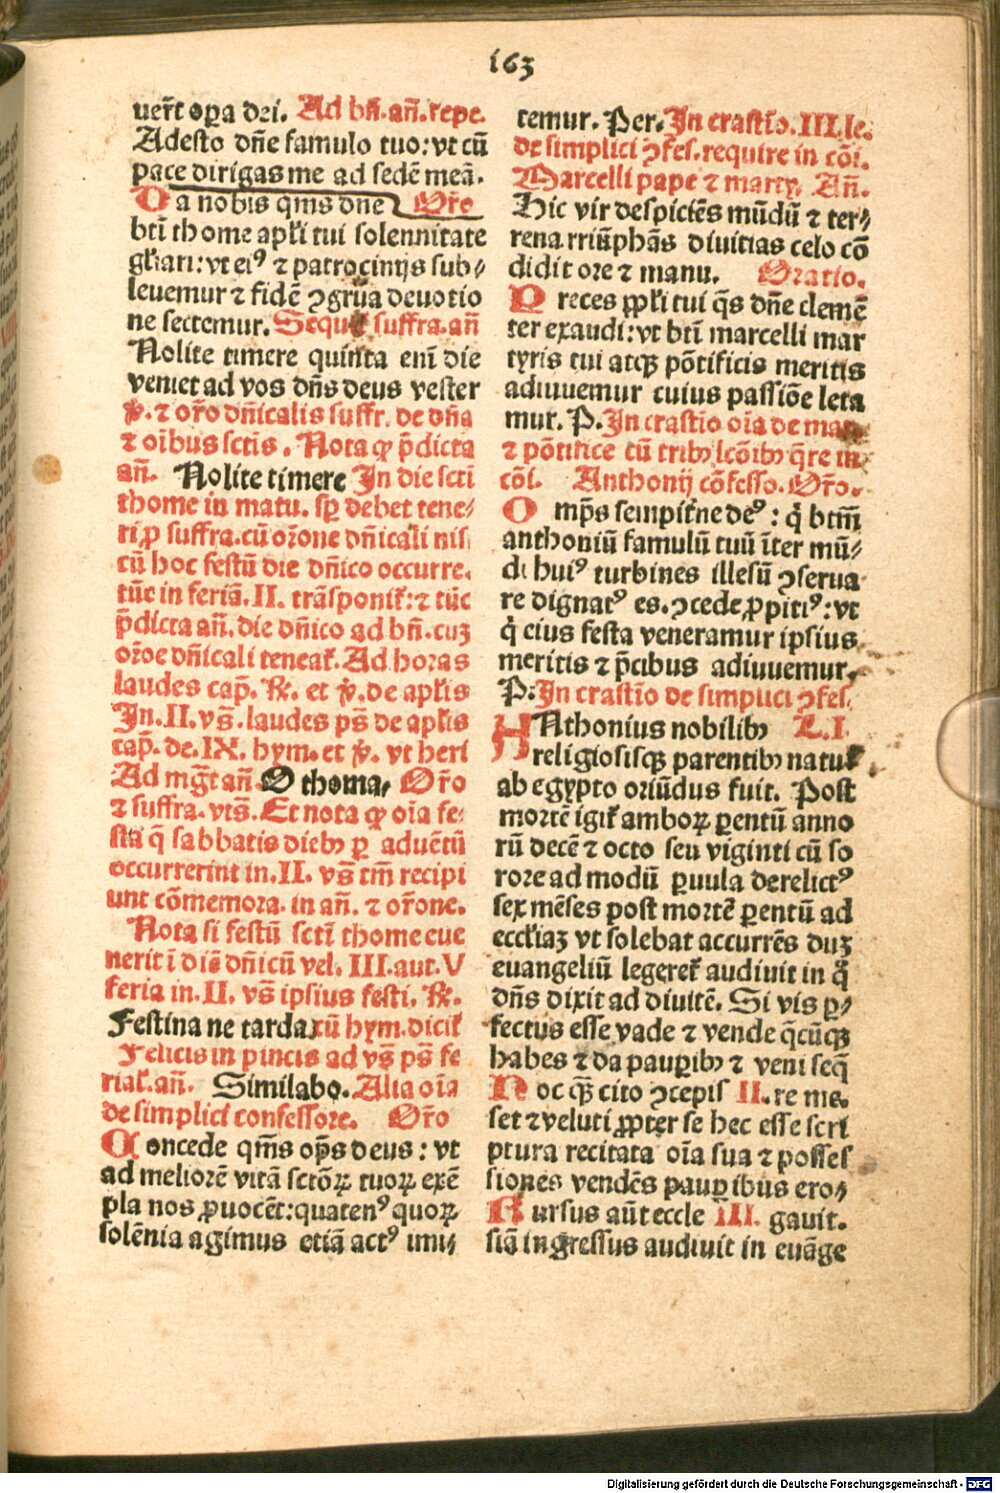 163
uer̄t oꝑa dei. Ad bn̄. an̄. repe.
Adesto dn̄e famulo tuo: vt cū
pace dirigas me ad sedē meā.
Da nobis qm̄s dn̄e Or̄o
bt̄i thome apl̄i tui solennitate
gl̄iari: vt eiꝰ ⁊ patrocinijs sub⸗
leuemur ⁊ fidē ꝯgrua deuotio
ne sectemur. Sequit̄ suffra. an̄
Nolite timere quinta eni̅ die
veniet ad vos dn̄s deus vester
v̄. ⁊ or̄o dn̄icalis suffr. de dn̄a
⁊ oi̅bus sctis. Nota ꝙ p̄dicta
an̄. Nolite timere In die scti
thome in matu. sꝑ debet tene⸗
ri ꝓ suffra. cū or̄one dn̄icali nisi
cū hoc festū die dn̄ico occurre.
tūc in feriā. II. trāsponit̄: ⁊ tūc
p̄dicta an̄. die dn̄ico ad bn̄. cuꝫ
or̄oe dn̄icali teneat̄. Ad horas
laudes cap̄. R̄. et v̄. de apl̄is
In. II. vs̄. laudes ps̄ de apl̄is
cap̄. de. IX. hym. et v̄. vt heri
Ad mg̅t an̄. O thoma, Or̄o
⁊ suffra. vts̄. Et nota ꝙ oi̅a fe⸗
sta q̄ sabbatis dieb᷒ ꝑ aduētū
occurrerint in. II. vs̄ tm̄ recipi
unt cōmemora. in an̄. ⁊ or̄one.
Nota si festū scti̅ thome eue
nerit i̅ diē dn̄icū vel. III. aut. V
feria in. II. vs̄ ipsius festi. R̄.
Festina ne tarda cū hym. dicit̄
Felicis in pincis ad vs̄ ps̄ fe
rial̄. an̄. Similabo. Alia oi̅a
de simplici confessore. Or̄o
Concede qm̄s op̄s deus: vt
ad meliorē vitā sctōꝝ tuoꝝ exē
pla nos ꝓuocēt: quatenꝰ quoꝝ
solēnia agimus etiā actꝰ imi⸗
temur. Per. In crasti̅o. III. le.
de simplici ꝯfes. require in cōi.
Marcelli pape ⁊ marty. An̄.
Hic vir despiciēs mūdū ⁊ ter⸗
rena triūphās diuitias celo cō
didit ore ⁊ manu. Oratio.
Preces ppl̄i tui q̄s dn̄e clemē
ter exaudi: vt bt̄i marcelli mar
tyris tui atqꝫ pōtificis meritis
adiuuemur cuius passiōe leta
mur. P. In crasti̅o oi̅a de mar.
⁊ pōtifice cū trib᷒ lcōib᷒ q̄re in
cōi. Anthonij cōfesso. Or̄o.
Omp̄s sempit̄ne deꝰ: q̄ btm̄
anthoniū famulū tuū i̅ter mū⸗
di huiꝰ turbines illesū ꝯserua
re dignatꝰ es. ꝯcede ꝓpitiꝰ: vt
q̄ eius festa veneramur ipsius
meritis ⁊ p̄cibus adiuuemur.
P: In crasti̅o de simplici ꝯfes.
ANthonius nobilib᷒ L. I.
religiosisqꝫ parentib᷒ natus
ab egypto oriūdus fuit. Post
mortē igit̄ amboꝝ ꝑentū anno
rū decē ⁊ octo seu viginti cū so
rore ad modū ꝑuula derelictꝰ
sex mēses post mortē ꝑentū ad
eccl̄iaꝫ vt solebat accurrēs duꝫ
euangeliū legeret̄ audiuit in q̄
dn̄s dixit ad diuitē. Si vis ꝑ⸗
fectus esse vade ⁊ vende q̄cūqꝫ
habes ⁊ da pauꝑib᷒ ⁊ veni seq̄
Hoc qꝫ cito ꝯcepis II. re mē.
set ⁊ veluti ꝓpter se hec esse scri
ptura recitata oi̅a sua ⁊ posses
siones vendēs pauꝑibus ero⸗
Rursus aūt eccle III. gauit.
siā ingressus audiuit in euāge
Digitalisierung gefördert durch die Deutsche Forschungsgemeinschaft - DFG